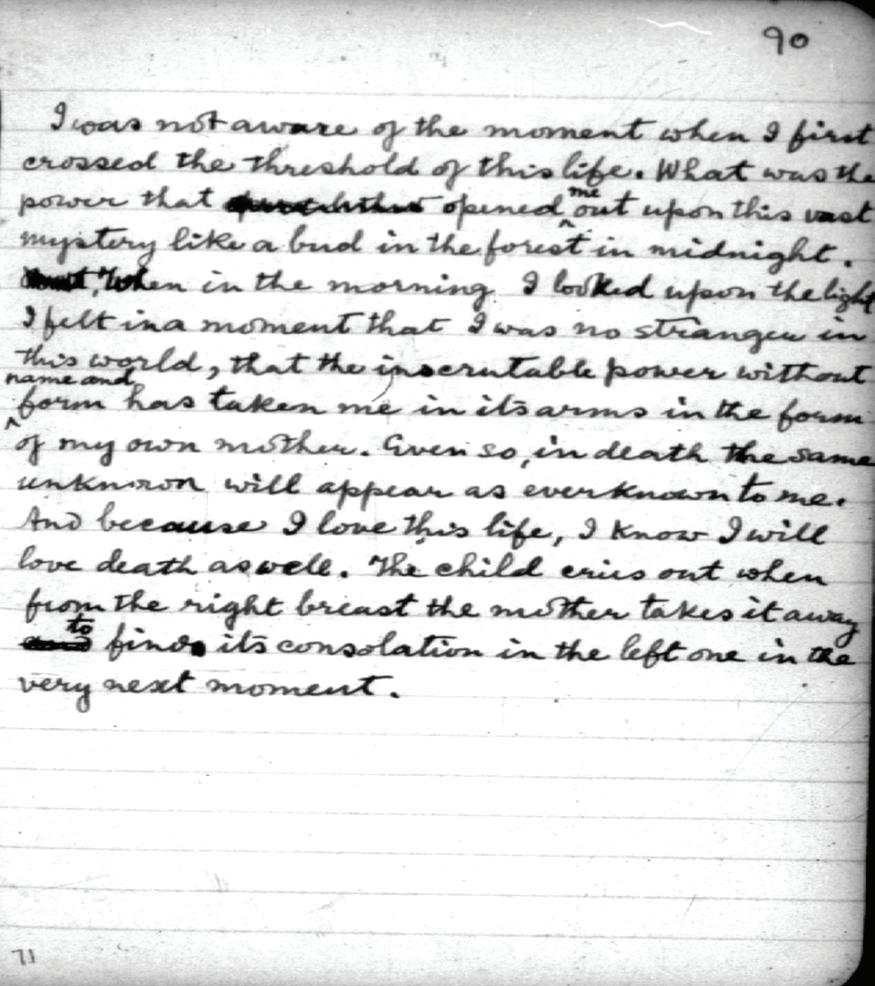 90
I was not aware of the moment when I first
crossed the threshold of this life. What was the
power that opened me out upon this vast
mystery like a bud in the forest in midnight.
When in the morning I looked upon the light
I felt in a moment that I was no stranger in
this world, that the inscrutable power without
name and
form has taken me in its arms in the form
of my own mother. Even so, in death the same
unknown will appear as ever known to me.
And because I love this life, I know I will
love death as well. The child cries out when
from the right breast the mother takes it away
to find its consolation in the left one in the
very next moment.
71